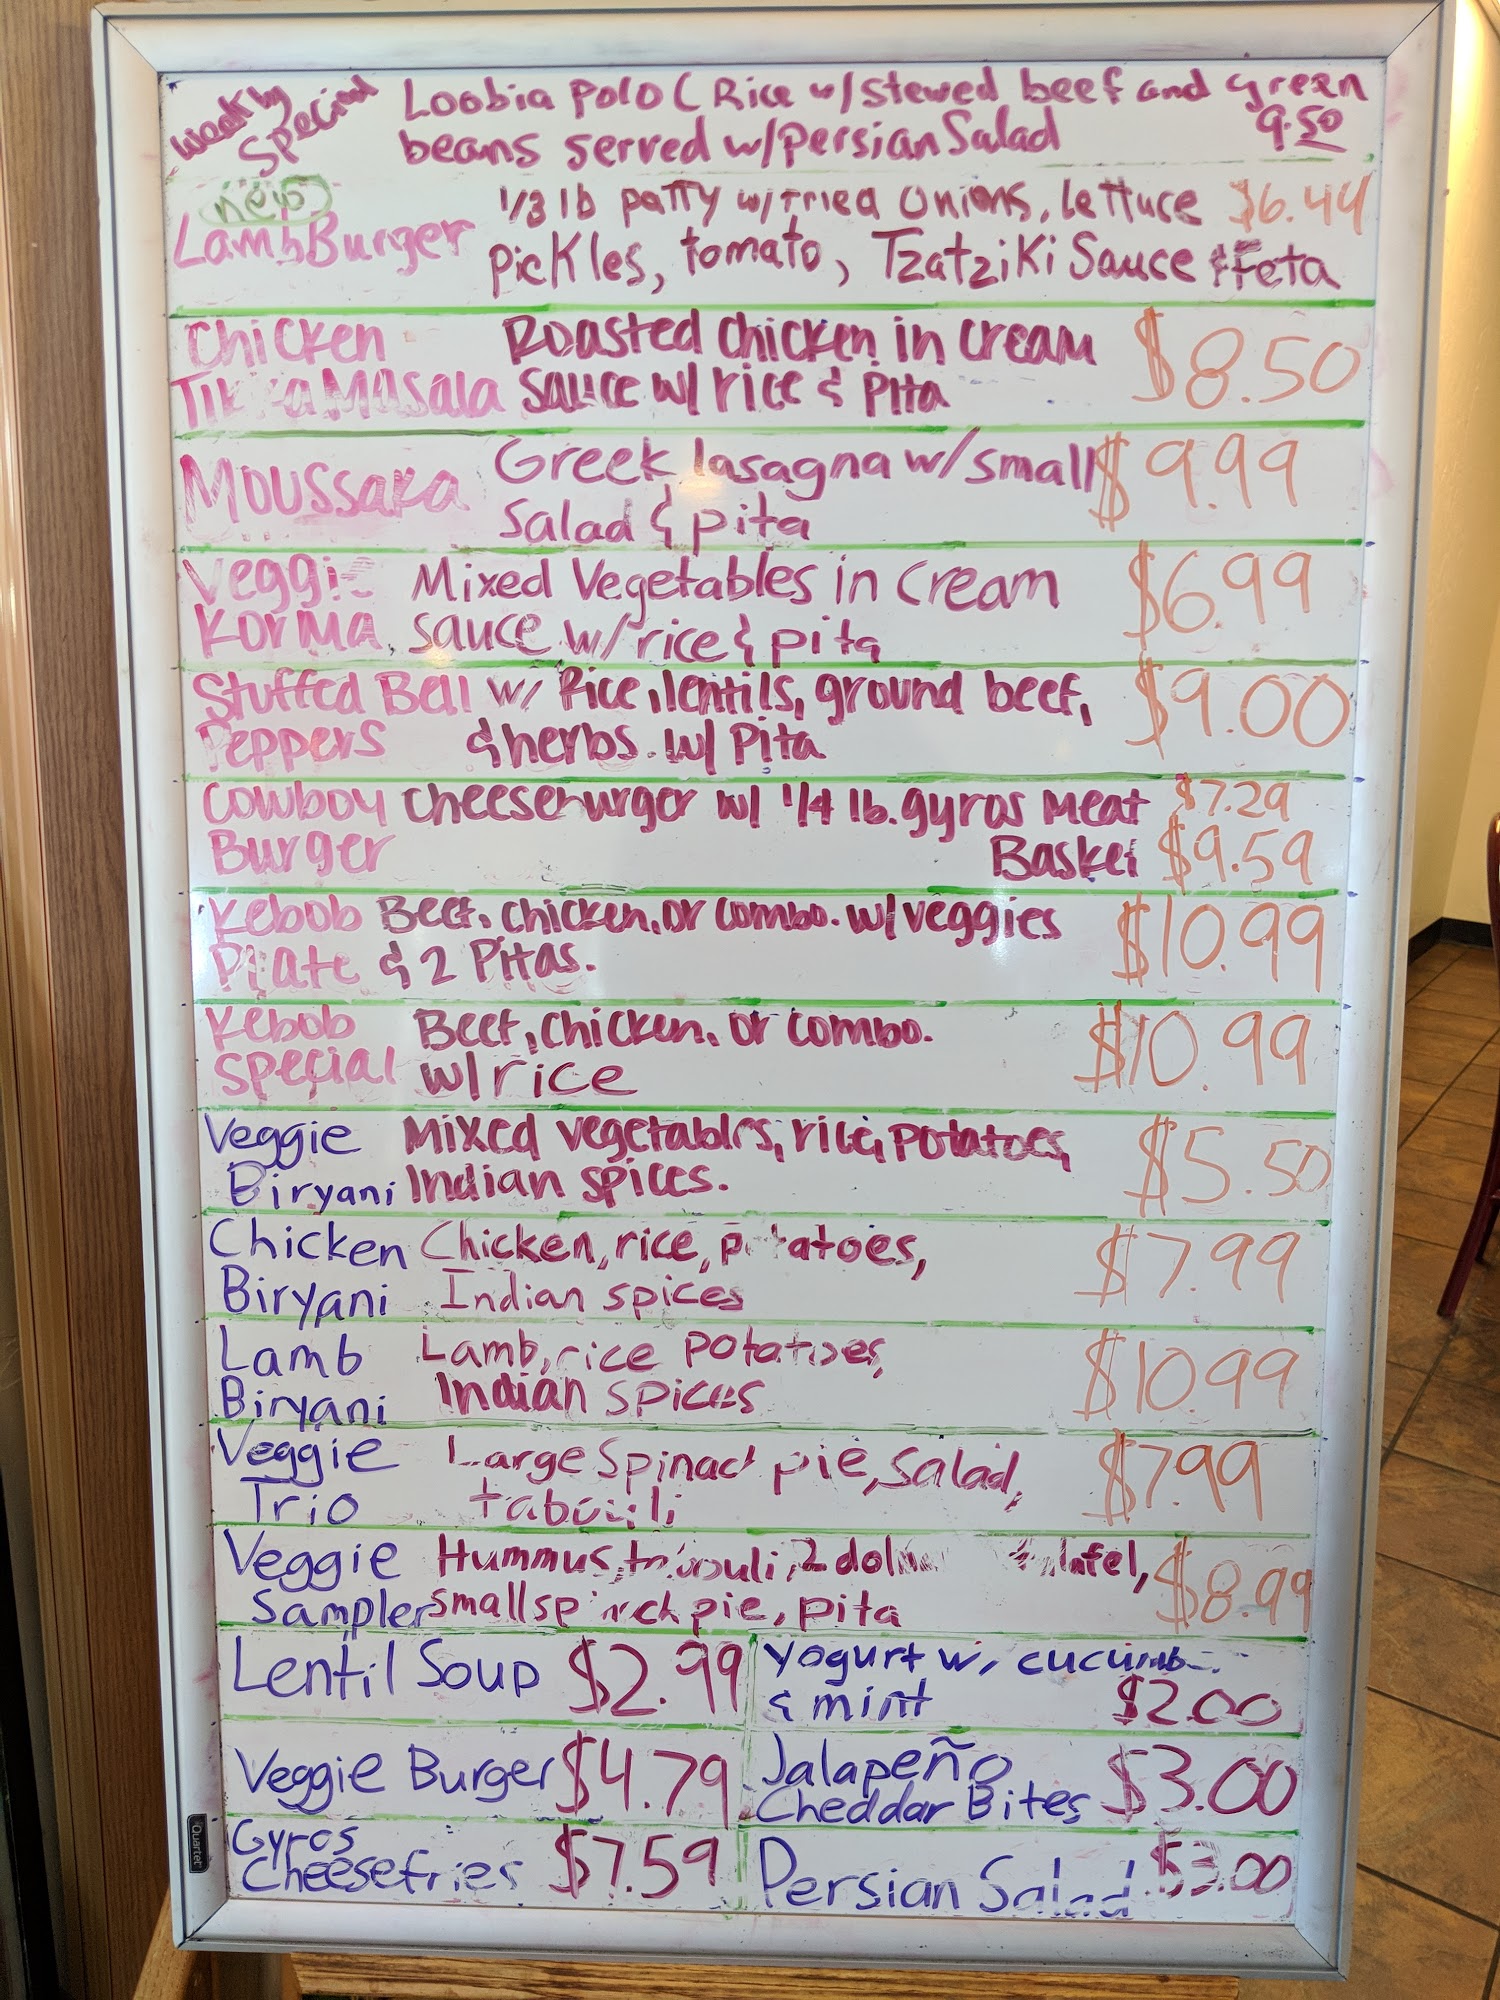 Weekly Special Loobia Polo ( Rice w/ stewed beef and green
beans served w/ Persian Salad 9.50
new
Lamb Burger 1/3 lb patty w/ fried onions, lettuce $6.44
pickles, tomato, Tzatziki Sauce & Feta
Chicken Roasted chicken in cream $8.50
Tikka Masala sauce w/ rice & pita
Moussaka Greek lasagna w/ small $9.99
salad & pita
Veggie Mixed Vegetables in cream $6.99
Korma sauce w/ rice & pita
Stuffed Bell w/ Rice, lentils, ground beef, $9.00
Peppers & herbs. w/ Pita
Cowboy Cheeseburger w/ 1/4 lb. gyros meat $7.29
Burger Basket $9.59
Kebob Beef, chicken, or combo. w/ veggies $10.99
Plate & 2 Pitas.
Kebob Beef, chicken, or combo. $10.99
Special w/ rice
Veggie Mixed vegetables, rice, potatoes, $5.50
Biryani Indian spices.
Chicken Chicken, rice, potatoes, $7.99
Biryani Indian spices
Lamb Lamb, rice potatoes, $10.99
Biryani Indian spices
Veggie Large Spinach pie, Salad, $7.99
Trio tabouli
Veggie Hummus, tabouli, 2 dolma falafel, $8.99
Sampler small spinach pie, pita
Lentil Soup $2.99
Yogurt w/ cucumb
& mint $2.00
Veggie Burger $4.79
Jalapeño
Cheddar Bites $3.00
Gyros
Cheesefries $7.59
Persian Salad $3.00
Quartet